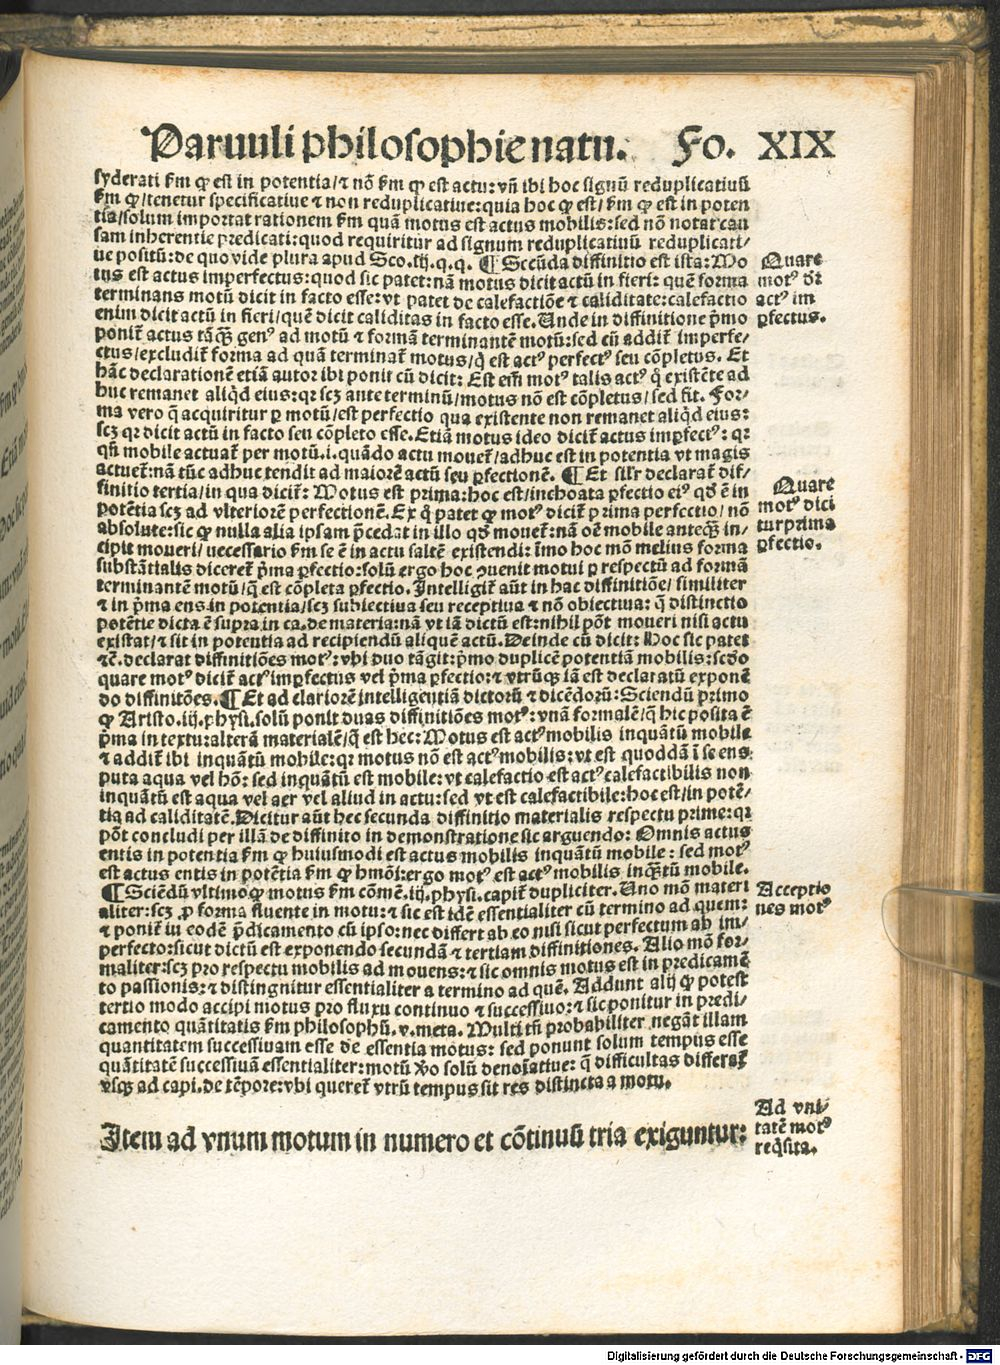 Paruuli philosophie natu. Fo. XIX
syderati ẜm ꝙ est in potentia/⁊ nõ ẜm ꝙ est actu: vñ ibi hoc signũ reduplicatiuũ
ẜm ꝙ/tenetur specificatiue ⁊ non reduplicatiue: quia hoc ꝙ est/ẜm ꝙ est in poten
tia/solum importat rationem ẜm quã motus est actus mobilis: sed nõ notat cau
sam inherentie predicati: quod requiritur ad signum reduplicatiuũ reduplicati/
ue positũ: de quo vide plura apud Sco. iij. q. q. ¶ Scẽda diffinitio est ista: Mo
tus est actus imperfectus: quod sic patet: nã motus dicit actũ in fieri: quẽ forma
terminans motũ dicit in facto esse: vt patet de calefactiõe ⁊ caliditate: calefactio
enim dicit actũ in fieri/quẽ dicit caliditas in facto esse. Unde in diffinitione pṙmo
ponit̃ actus tãꝗ̃ genꝰ ad motũ ⁊ formã terminantẽ motũ: sed cũ addit̃ imperfe/
ctus/excludit̃ forma ad quã terminat̃ motus/q̇ est actꝰ perfectꝰ seu cõpletus. Et
hãc declarationẽ etiã autor ibi ponit cũ dicit: Est em̃ motꝰ talis actꝰ q̇ existẽte ad
huc remanet aliq̇d eius: qꝛ scꝫ ante terminũ/motus nõ est cõpletus/sed fit. For/
ma vero q̃ acquiritur ꝑ motũ/est perfectio qua existente non remanet aliq̇d eius:
scꝫ qꝛ dicit actũ in facto seu cõpleto esse. Etiã motus ideo dicit̃ actus imꝑfectꝰ: qꝛ
qñ mobile actuat̃ per motũ .i. quãdo actu mouet̃/adhuc est in potentia vt magis
actuet̃: nã tũc adhuc tendit ad maiorẽ actũ seu ꝑfectionẽ. ¶ Et sil̃r declarat̃ dif/
finitio tertia/in qua dicit̃: Motus est prima: hoc est/inchoata ꝑfectio eiꝰ qđ ẽ in
potẽtia scꝫ ad vlteriorẽ perfectionẽ. Ex q̇ patet ꝙ motꝰ dicit̃ prima perfectio/nõ
absolute: sic ꝙ nulla alia ipsam p̃cedat in illo qđ mouet̃: nã oẽ mobile anteꝗ̃ in/
cipit moueri/necessario ẜm se ẽ in actu saltẽ existendi: ĩmo hoc mõ melius forma
substãntialis diceret̃ pṙma ꝑfectio: solũ ergo hoc ↄuenit motui ꝑ respectũ ad formã
terminantẽ motũ/q̃ est cõpleta ꝑfectio. Intelligit̃ aũt in hac diffinitiõe/similiter
⁊ in pṙma ens in potentia/scꝫ subiectiua seu receptiua ⁊ nõ obiectiua: q̃ distinctio
potẽtie dicta ẽ supra in ca. de materia: nã vt iã dictũ est: nihil põt moueri nisi actu
existat/⁊ sit in potentia ad recipiendũ aliquẽ actũ. Deinde cũ dicit: Hoc sic patet
⁊c̃. declarat diffinitiões motꝰ: vbi duo tãgit: pṙmo duplicẽ potentiã mobilis: scđo
quare motꝰ dicit̃ actꝰ imꝑfectus vel pṙma ꝑfectio: ⁊ vtrũꝗ iã est declaratũ exponẽ
do diffinitõnes. ¶ Et ad clariorẽ intelligentiã dictorũ ⁊ dicẽdorũ: Sciendũ primo
ꝙ Aristo. iij. physi. solũ ponit duas diffinitiões motꝰ: vnã formalẽ/q̃ hic posita ẽ
pṙma in textu: alterã materialẽ/q̃ est hec: Motus est actꝰ mobilis inquãtũ mobile
⁊ addit̃ ibi inquãtũ mobile: qꝛ motus nõ est actꝰ mobilis: vt est quoddã ĩ se ens
puta aqua vel hõ: sed inquãtũ est mobile: vt calefactio est actꝰ calefactibilis non
inquãtũ est aqua vel aer vel aliud in actu: sed vt est calefactibile: hoc est/in potẽ/
tia ad caliditatẽ. Dicitur aũt hec secunda diffinitio materialis respectu prime: qꝛ
põt concludi per illã de diffinito in demonstratione sic arguendo: Omnis actus
entis in potentia ẜm ꝙ huiusmodi est actus mobilis inquãtũ mobile: sed motꝰ
est actus entis in potẽtia ẜm ꝙ hmõi: ergo motꝰ est actꝰ mobilis inꝗ̃tũ mobile.
¶ Sciẽdũ vltimo ꝙ motus ẜm cõmẽ. iij. physi. capit̃ dupliciter. Uno mõ materi
aliter: scꝫ ꝓ forma fluente in motu: ⁊ sic est idẽ essentialiter cũ termino ad quem:
⁊ ponit̃ in eodẽ p̃dicamento cũ ipso: nec differt ab eo nisi sicut perfectum ab im/
perfecto: sicut dictũ est exponendo secundã ⁊ tertiam diffinitiones. Alio mõ for/
maliter: scꝫ pro respectu mobilis ad mouens: ⁊ sic omnis motus est in predicamẽ
to passionis: ⁊ distinguitur essentialiter a termino ad quẽ. Addunt alij ꝙ potest
tertio modo accipi motus pro fluxu continuo ⁊ successiuo: ⁊ sic ponitur in predi/
camento quãtitatis ẜm philosophũ. v. meta. Multi tñ probabiliter negãt illam
quantitatem successiuam esse de essentia motus: sed ponunt solum tempus esse
quãtitatẽ successiuã essentialiter: motũ ꝟo solũ denoĩatiue: q̃ difficultas differat̃
vsꝗ ad capi. de tẽpore: vbi queret̃ vtrũ tempus sit res distincta a motu.
Item ad vnum motum in numero et cõtinuũ tria exiguntur:
Quare
motꝰ dr̃
actꝰ im
ꝑfectus.
Quare
motꝰ dici
tur prima
ꝑfectio.
Acceptio
nes motꝰ
Ad vni/
tatẽ motꝰ
req̇sita.
Digitalisierung gefördert durch die Deutsche Forschungsgemeinschaft - DFG